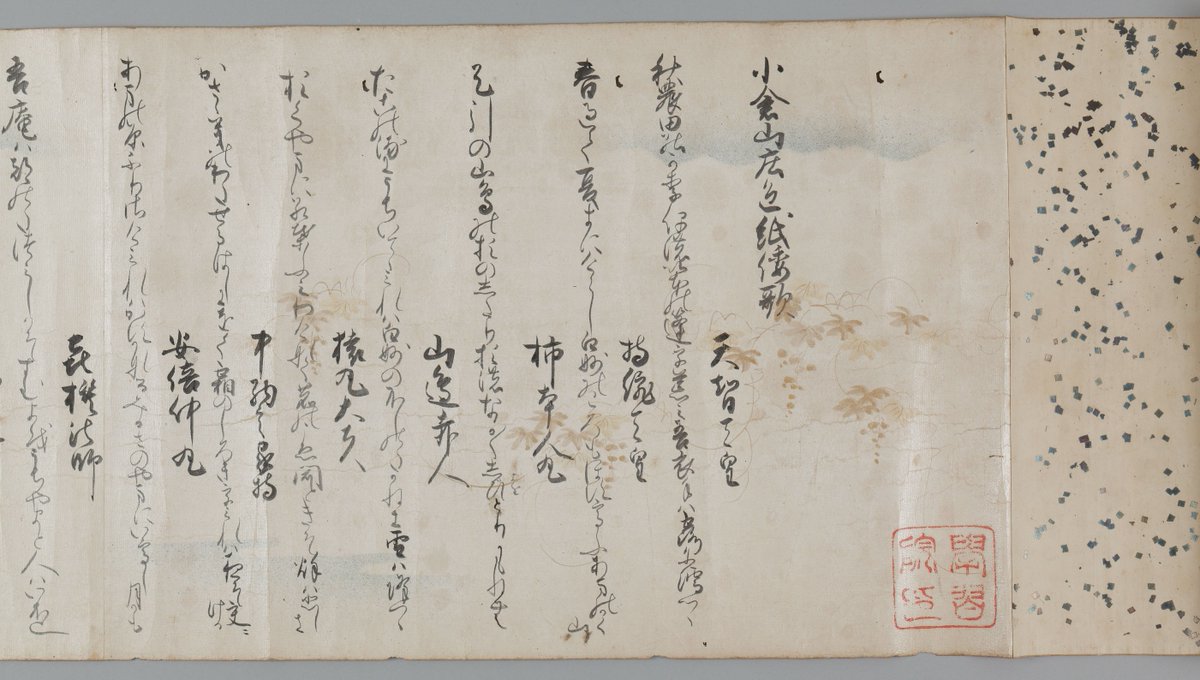 小倉山庄色紙倭歌
天智天皇
秋農田能可李保濃菴能苫乎荒三吾衣手八露尓濡つゝ
持統天皇
春過て夏来にけらし白妙のころもほすてふあまのかく山
柿本人丸
足引の山鳥の尾のしたり尾のなか/\しよをひとりかもねむ
山邊赤人
たこの浦にうちいてゝみれは白妙のふしのたかねに雪は降つゝ
猿丸大夫
おくやまに紅葉ふみわけ鳴鹿のこゑ聞ときそ秋は悲しき
中納言家持
かさゝきのわたせるはしにをく霜のしろきをみれは夜そ更にける
安倍仲丸
あまの原ふりさけみれはかすかなるみかさのやまにいてし月かも
喜撰法師
吾庵は都のたつみしかそすむよをうちやまと人はいふ也
學習院印